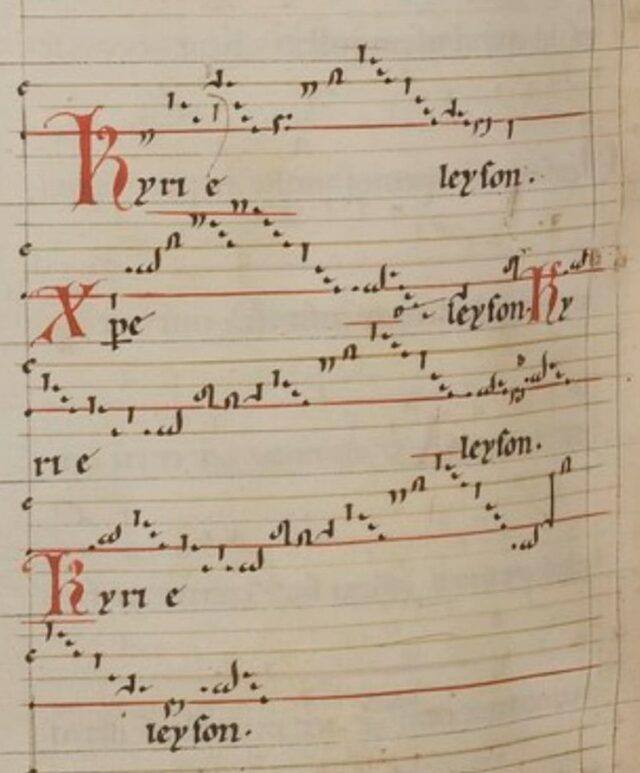 Kyri e leyſon.
Xpe leyſon. Ky
ri e leyſon.
Kyri e
leyſon.